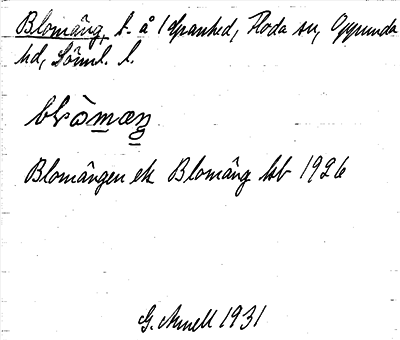 Blomäng, t. å 1 Granhed, Floda sn, Oppunda
hd, Söml. l.
blòmæŋ
Blomängen ek Blomäng kb 1926
G. Arnell 1931